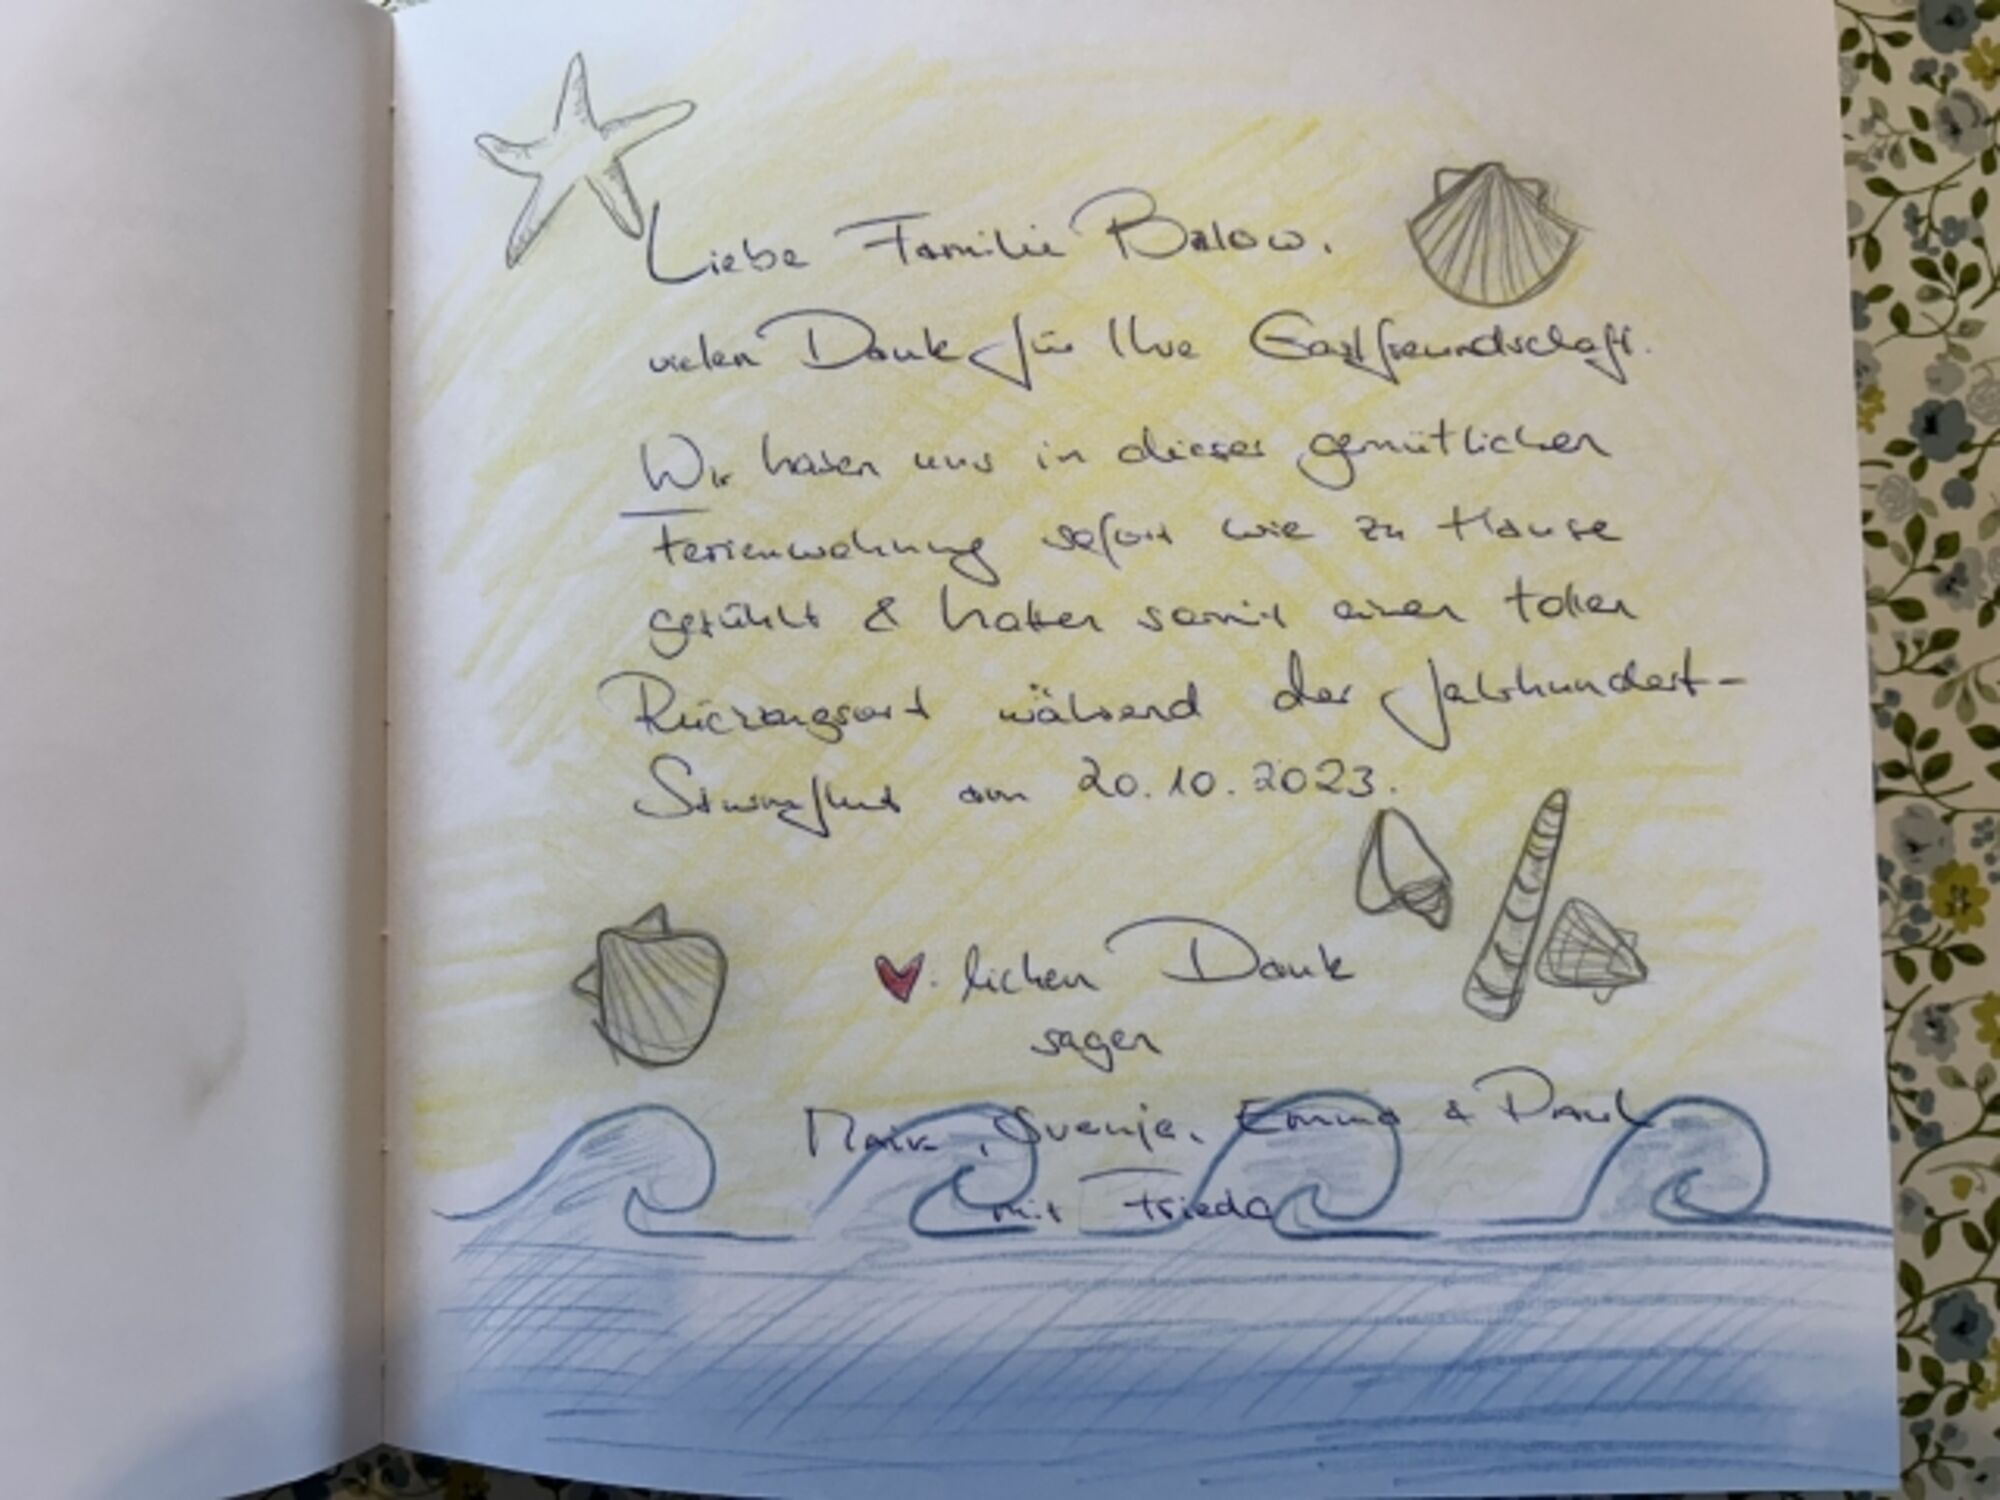 Liebe Familie Balow,
vielen Dank für Ihre Gastfreundschaft.
Wir haben uns in dieser gemütlichen
Ferienwohnung sofort wie zu Hause
gefühlt & hatten somit einen tollen
Rückzugsort während der Jahrhundert-
Sturmflut am 20.10.2023.
♥-lichen Dank
sagen
Maik, Svenja, Emma & Paul
mit Frieda